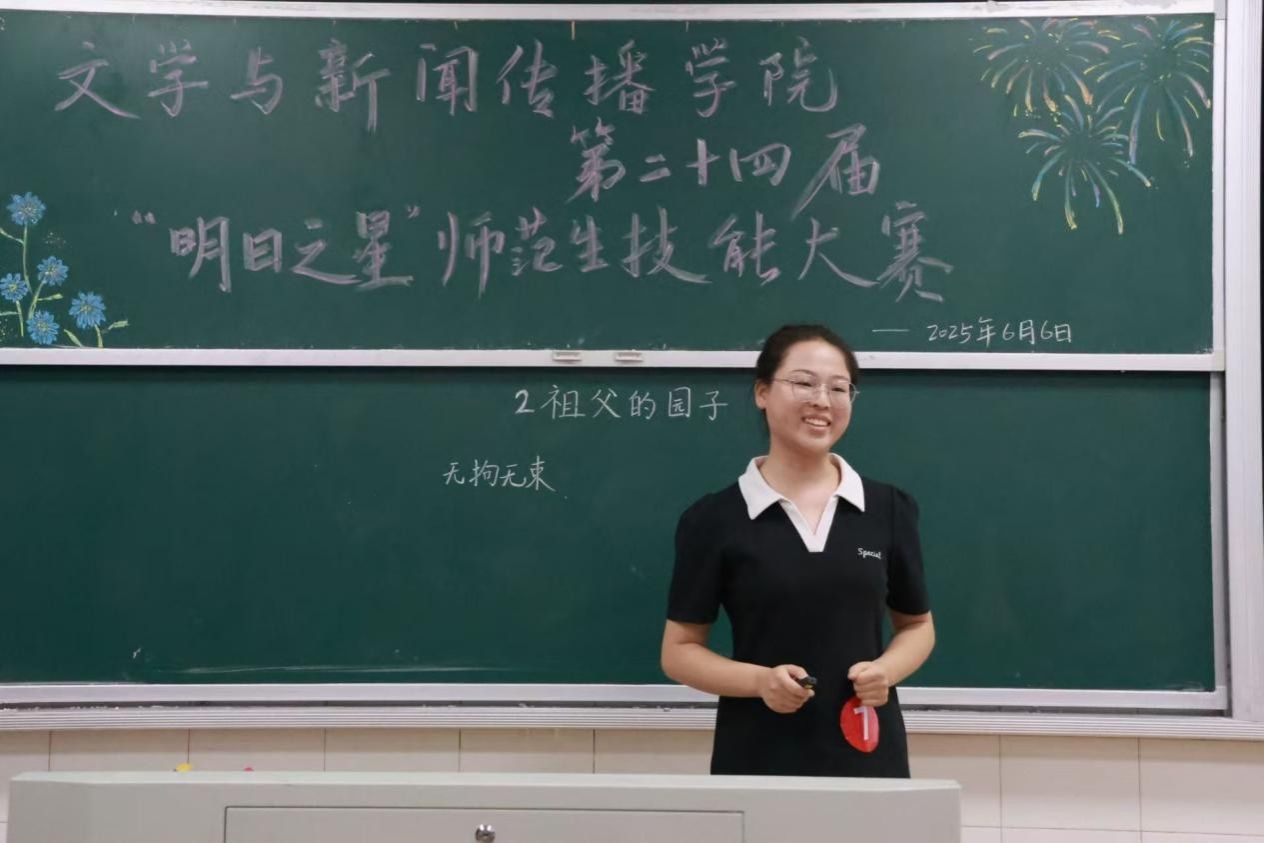 文学与新闻传播学院
第二十四届
“明日之星”师范生技能大赛
— 2025年6月6日
2 祖父的园子
无拘无束
Special
7